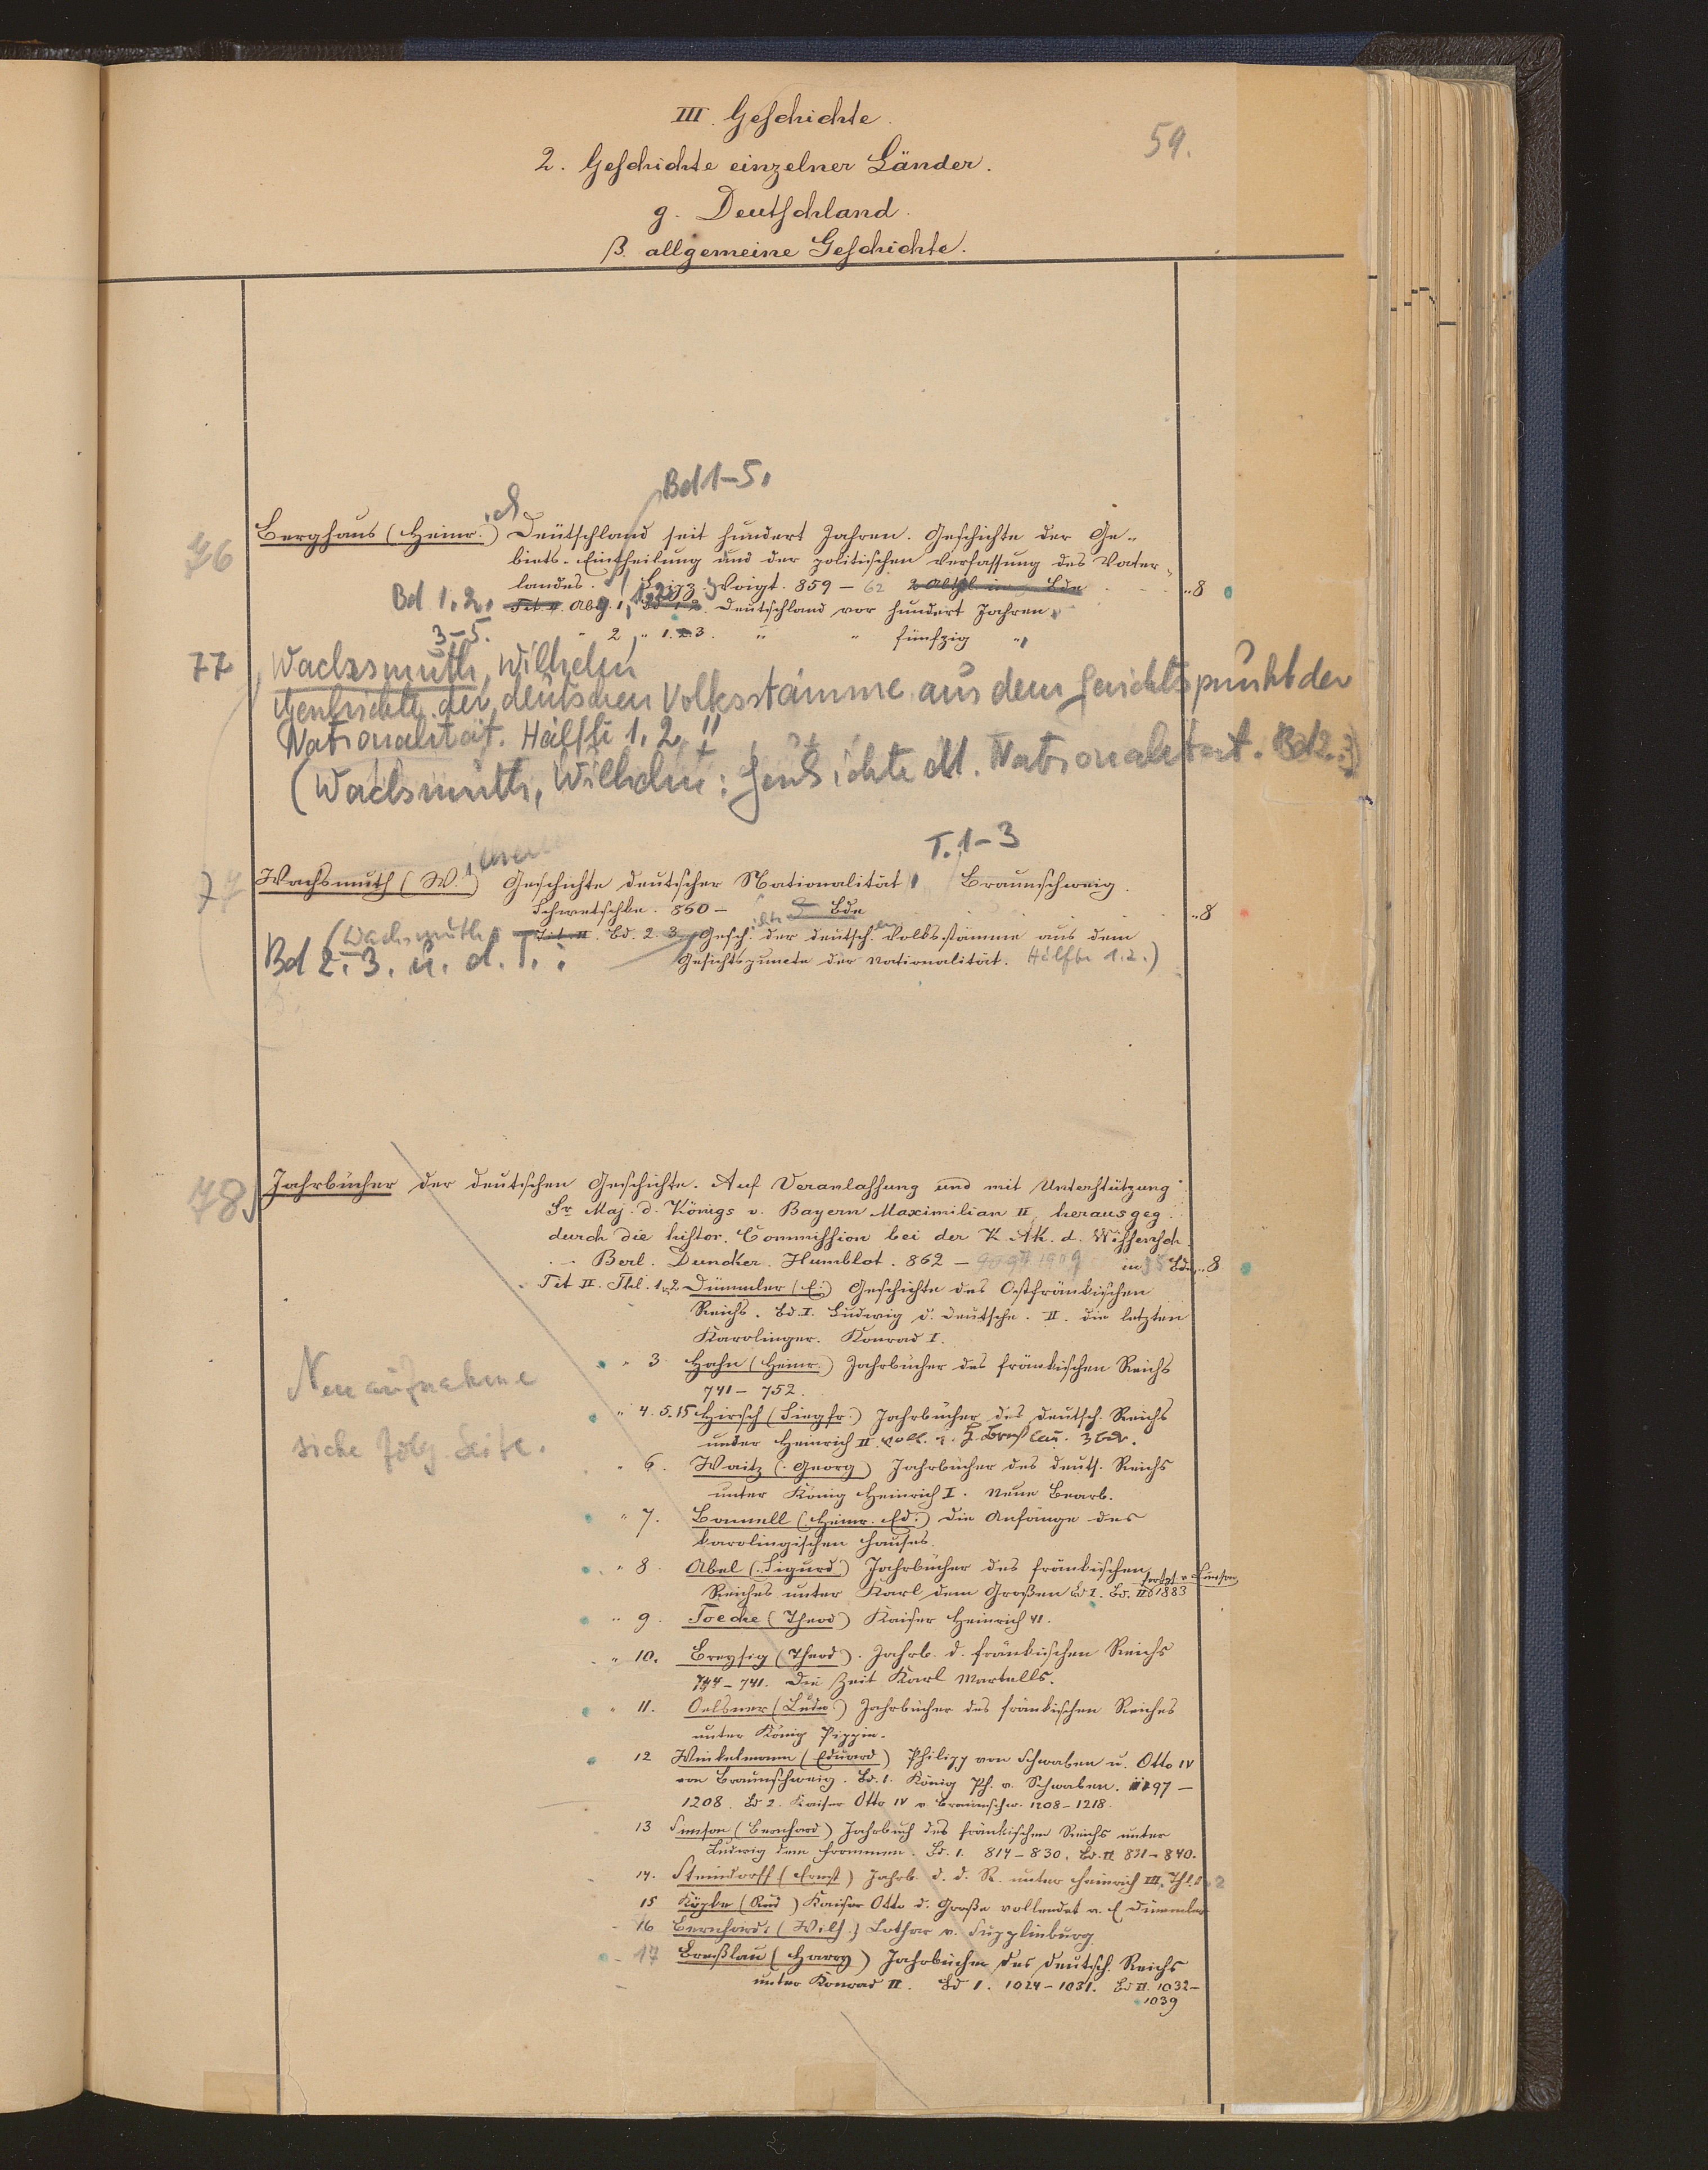 III. Geschichte.
59.
2. Geschichte einzelner Länder.
g. Deutschland.
β. allgemeine Geschichte.
Bd 1-5.
76
Berghaus (Heinr.) Deutschland seit hundert Jahren. Geschichte der Ge-
biets-Eintheilung und der politischen Verfassung des Vater-
landes. Lpzg. Voigt. 859 - 62 2 Abthl. in Bde ..8
Bd 1.2. Tit. II. Abth. 1, Bd 1.2. Deutschland vor hundert Jahren.
3-5. " 2, " 1.2.3. " " fünfzig "
77 Wachsmuth, Wilhelm
Geschichte der deutschen Volksstämme aus dem Gesichtspunkt der
Nationalität. Hälfte 1.2.
(Wachsmuth, Wilhelm: Geschichte dt. Nationalität. Bd 2.3)
T. 1-3
77 Wachsmuth (W.) Geschichte deutscher Nationalität Braunschweig.
Schwetschke. 860 - Bde ..8
(Wachsmuth Tit. II. Bd. 2.3. Gesch. der deutsch. Volksstämme aus dem
Bd 2.3. u. d. T.: Gesichtspuncte der Nationalität. Hälfte 1.2.)
78 Jahrbücher der deutschen Geschichte. Auf Veranlassung und mit Unterstützung
Sr. Maj. d. Königs v. Bayern Maximilian II herausgeg.
durch die histor. Commission bei der K. Ak. d. Wissensch.
Berl. Duncker. Humblot. 862 - 1909 in Bde ..8
Tit II. Thl. 1.2 Dümmler (E.) Geschichte des Ostfränkischen
Reichs. Bd. I. Ludwig d. Deutsche. II. die letzten
Karolinger. Konrad I.
Neuaufnahme
" 3. Hahn (Heinr.) Jahrbücher des fränkischen Reichs
741 - 752.
" 4.5.15 Hirsch (Siegfr.) Jahrbücher des Deutsch. Reichs
siehe folg. Seite.
unter Heinrich II. voll. v. H. Breßlau. 3 Bde.
" 6. Waitz (Georg) Jahrbücher des deuts. Reichs
unter König Heinrich I. Neue Bearb.
" 7. Bonnell (Heinr. Ed.) Die Anfänge des
karolingischen Hauses.
" 8. Abel (Sigurd) Jahrbücher des fränkischen
Reiches unter Karl dem Großen Bd I. Bd. II 1883 fortges. v. Simson
" 9. Toeche (Theod) Kaiser Heinrich VI.
" 10. Breysig (Theod). Jahrb. d. fränkischen Reichs
714 - 741. Die Zeit Karl Martells.
" 11. Oelsner (Ludw.) Jahrbücher des fränkischen Reiches
unter König Pippin.
12 Winkelmann (Eduard) Philipp von Schwaben u. Otto IV
von Braunschweig. Bd. 1. König Ph. v. Schwaben. 1197 -
1208. Bd 2. Kaiser Otto IV v. Braunschw. 1208 - 1218.
13 Simson (Bernhard) Jahrbuch des fränkischen Reichs unter
Ludwig dem Frommen. Bd. 1. 814 - 830. Bd. II 831 - 840.
14. Steindorff (Ernst) Jahrb. d. d. R. unter Heinrich III. Thl. 1. 2
15 Köpke (Rud) Kaiser Otto d. Große vollendet v. E Dümmler
16 Bernhardi (Wilh.) Lothar v. Supplinburg.
17 Breßlau (Harry) Jahrbücher des deutsch. Reichs
unter Konrad II. Bd 1. 1024 - 1031. Bd II. 1032-
1039